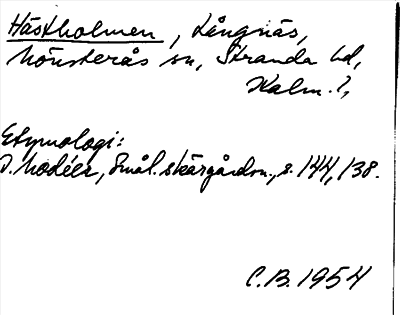 Hästholmen, Långnäs,
Mönsterås sn, Stranda hd,
Kalm. l,
Etymologi:
I. Modéer, Smål. skärgårdsn., s. 144, 138.
C.B. 1954